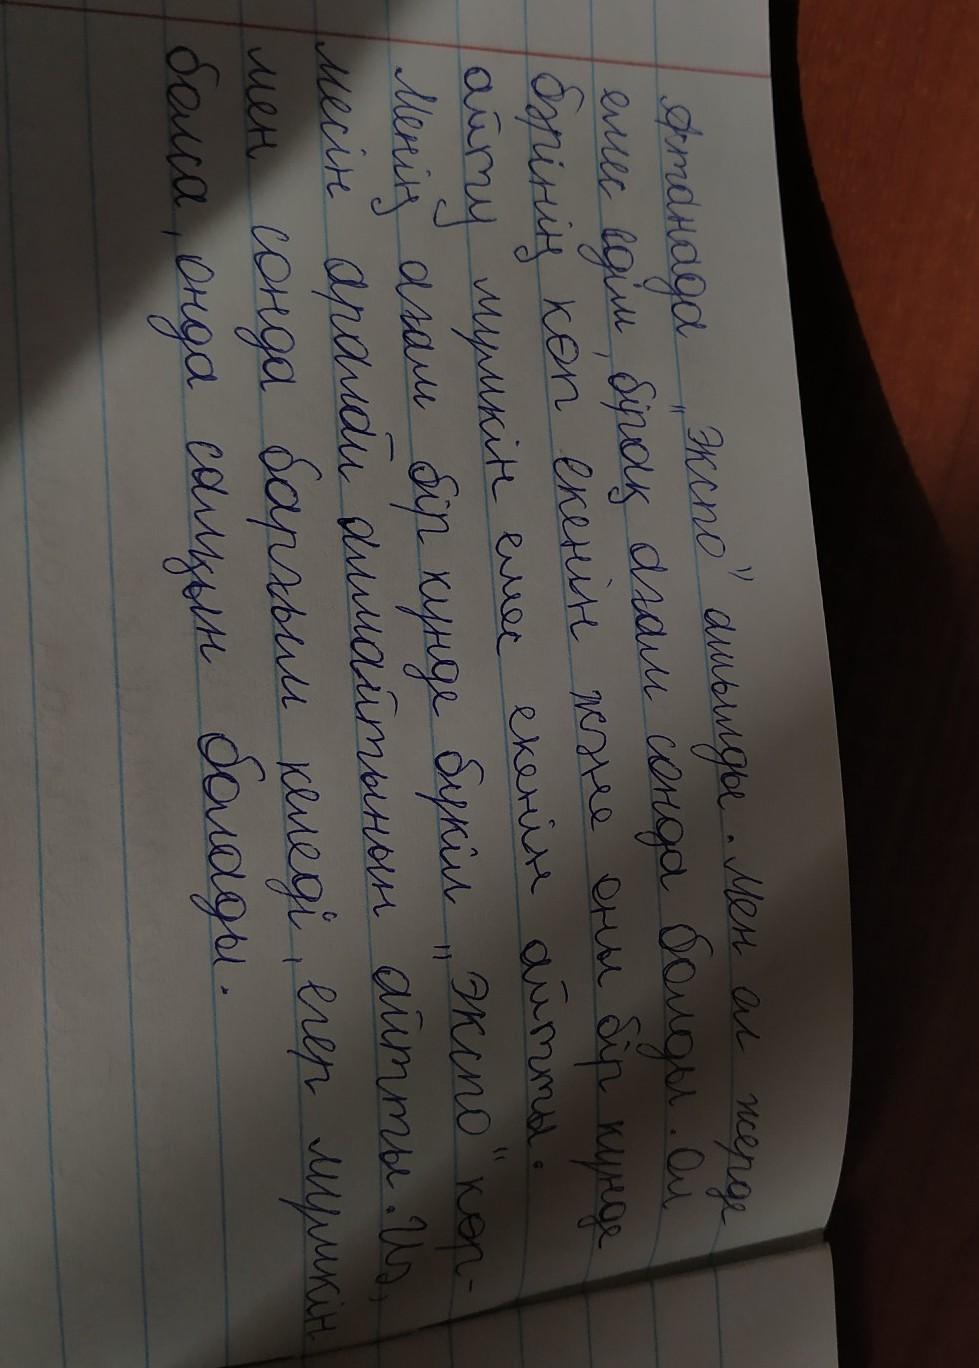 Астанада "Экспо" ашылды. Мен ол жерде
емес едім, бірақ ағам сонда болды. Ол
бәрінің көп екенін және оны бір күнде
айту мүмкін емес екенін айтты.
Менің ағам бір күнде бүкіл "Экспо" көр-
месін аралай алмайтынын айтты. Иә,
мен сонда барғым келеді, егер мүмкін
болса, онда салқын болады.